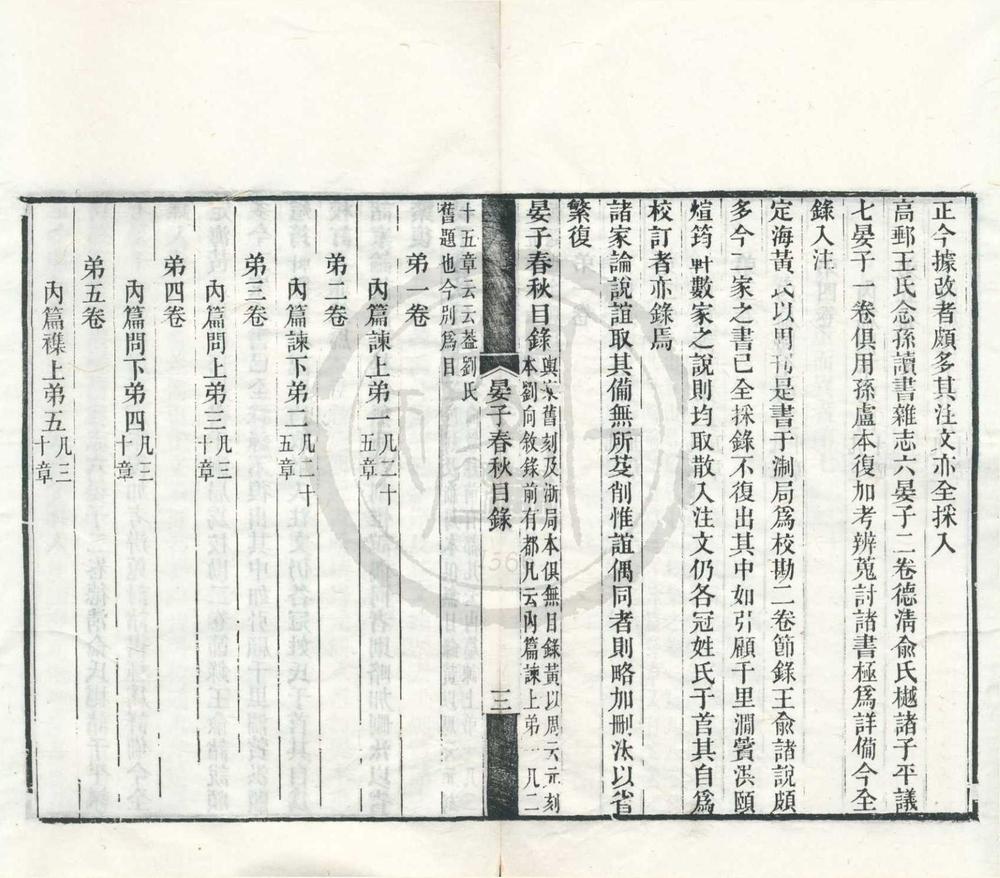 正今據改者頗多其注文亦全採入
高郵王氏念孫讀書雜志六晏子二卷德淸俞氏樾諸子平議
七晏子一卷俱用孫盧本復加考辨蒐討諸書極爲詳備今全
錄入注
定海黃氏以周刊是書于淛局爲校勘二卷節錄王俞諸說頗
多今二家之書已全採錄不復出其中如引顧千里澗薲洪頤
煊筠軒數家之說則均取散入注文仍各冠姓氏于首其自爲
校訂者亦錄焉
諸家論說誼取其備無所芟削惟誼偶同者則略加刪汰以省
繁復
晏子春秋目錄
吳槧舊刻及浙局本俱無目錄黃以周云元刻
本劉向敘錄前有都凡云內篇諫上弟一凡二
晏子春秋目錄
三
十五章云云葢劉氏
舊題也今別爲目
弟一卷
內篇諫上弟一凡二十五章
弟二卷
內篇諫下弟二凡二十五章
弟三卷
內篇問上弟三凡三十章
弟四卷
內篇問下弟四凡三十章
弟五卷
內篇襍上弟五凡三十章